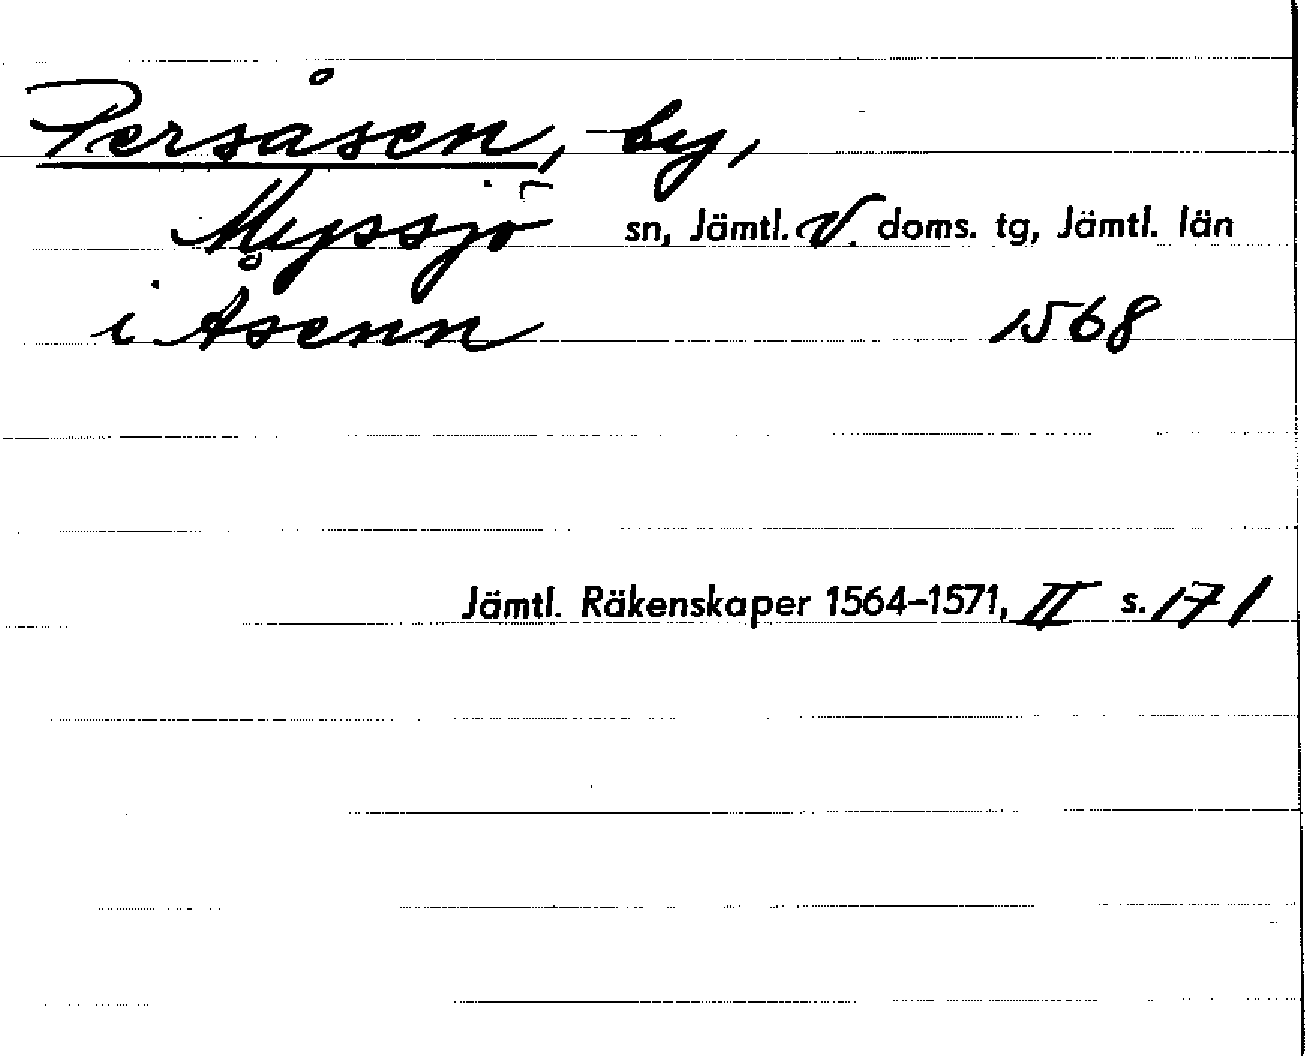 Persåsen, by,
Myssjö sn, Jämtl. V. doms. tg, Jämtl. län
i Åsenn 1568
Jämtl. Räkenskaper 1564-1571, II s. 171